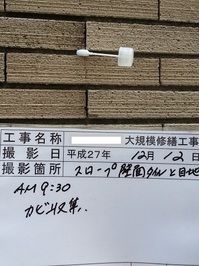 工事名称 大規模修繕工事
撮影日 平成27年 12月 12日
撮影箇所 スロープ壁面タイルと目地
AM 9:30
カビ収集.